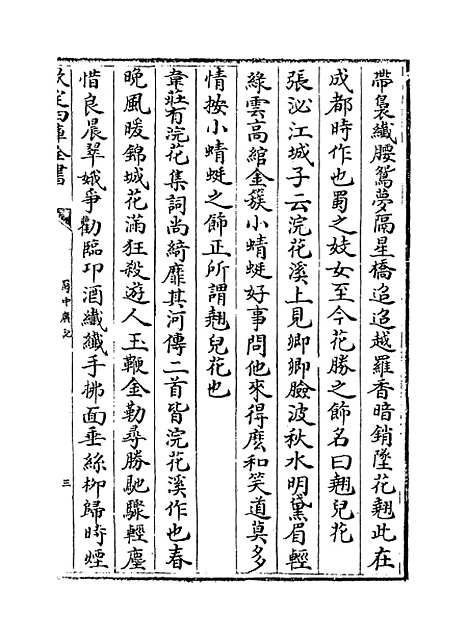 帶裊纖腰鴛夢隔星橋迢迢越羅香暗銷墜花翹此在
成都時作也蜀之妓女至今花勝之飾名曰翹兒花
張泌江城子云浣花溪上見卿卿臉波秋水明黛眉輕
綠雲高綰金簇小蜻蜓好事問他來得麽和笑道莫多
情按小蜻蜓之飾正所謂翹兒花也
韋莊有浣花集詞尚綺靡其河傳二首皆浣花溪作也春
晚風暖錦城花滿狂殺遊人玉鞭金勒尋勝馳驟輕塵
惜良晨翠娥爭勸臨邛酒纖纖手拂面垂絲柳歸時煙
欽定四庫全書
蜀中廣記
三